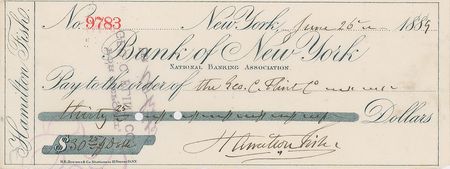 No. 9783 New York, June 26th 1889
Bank of New York
National Banking Association.
Pay to the order of the Geo. C. Flint Co
thirty Dollars
$30
Hamilton Fish
Hamilton Fish